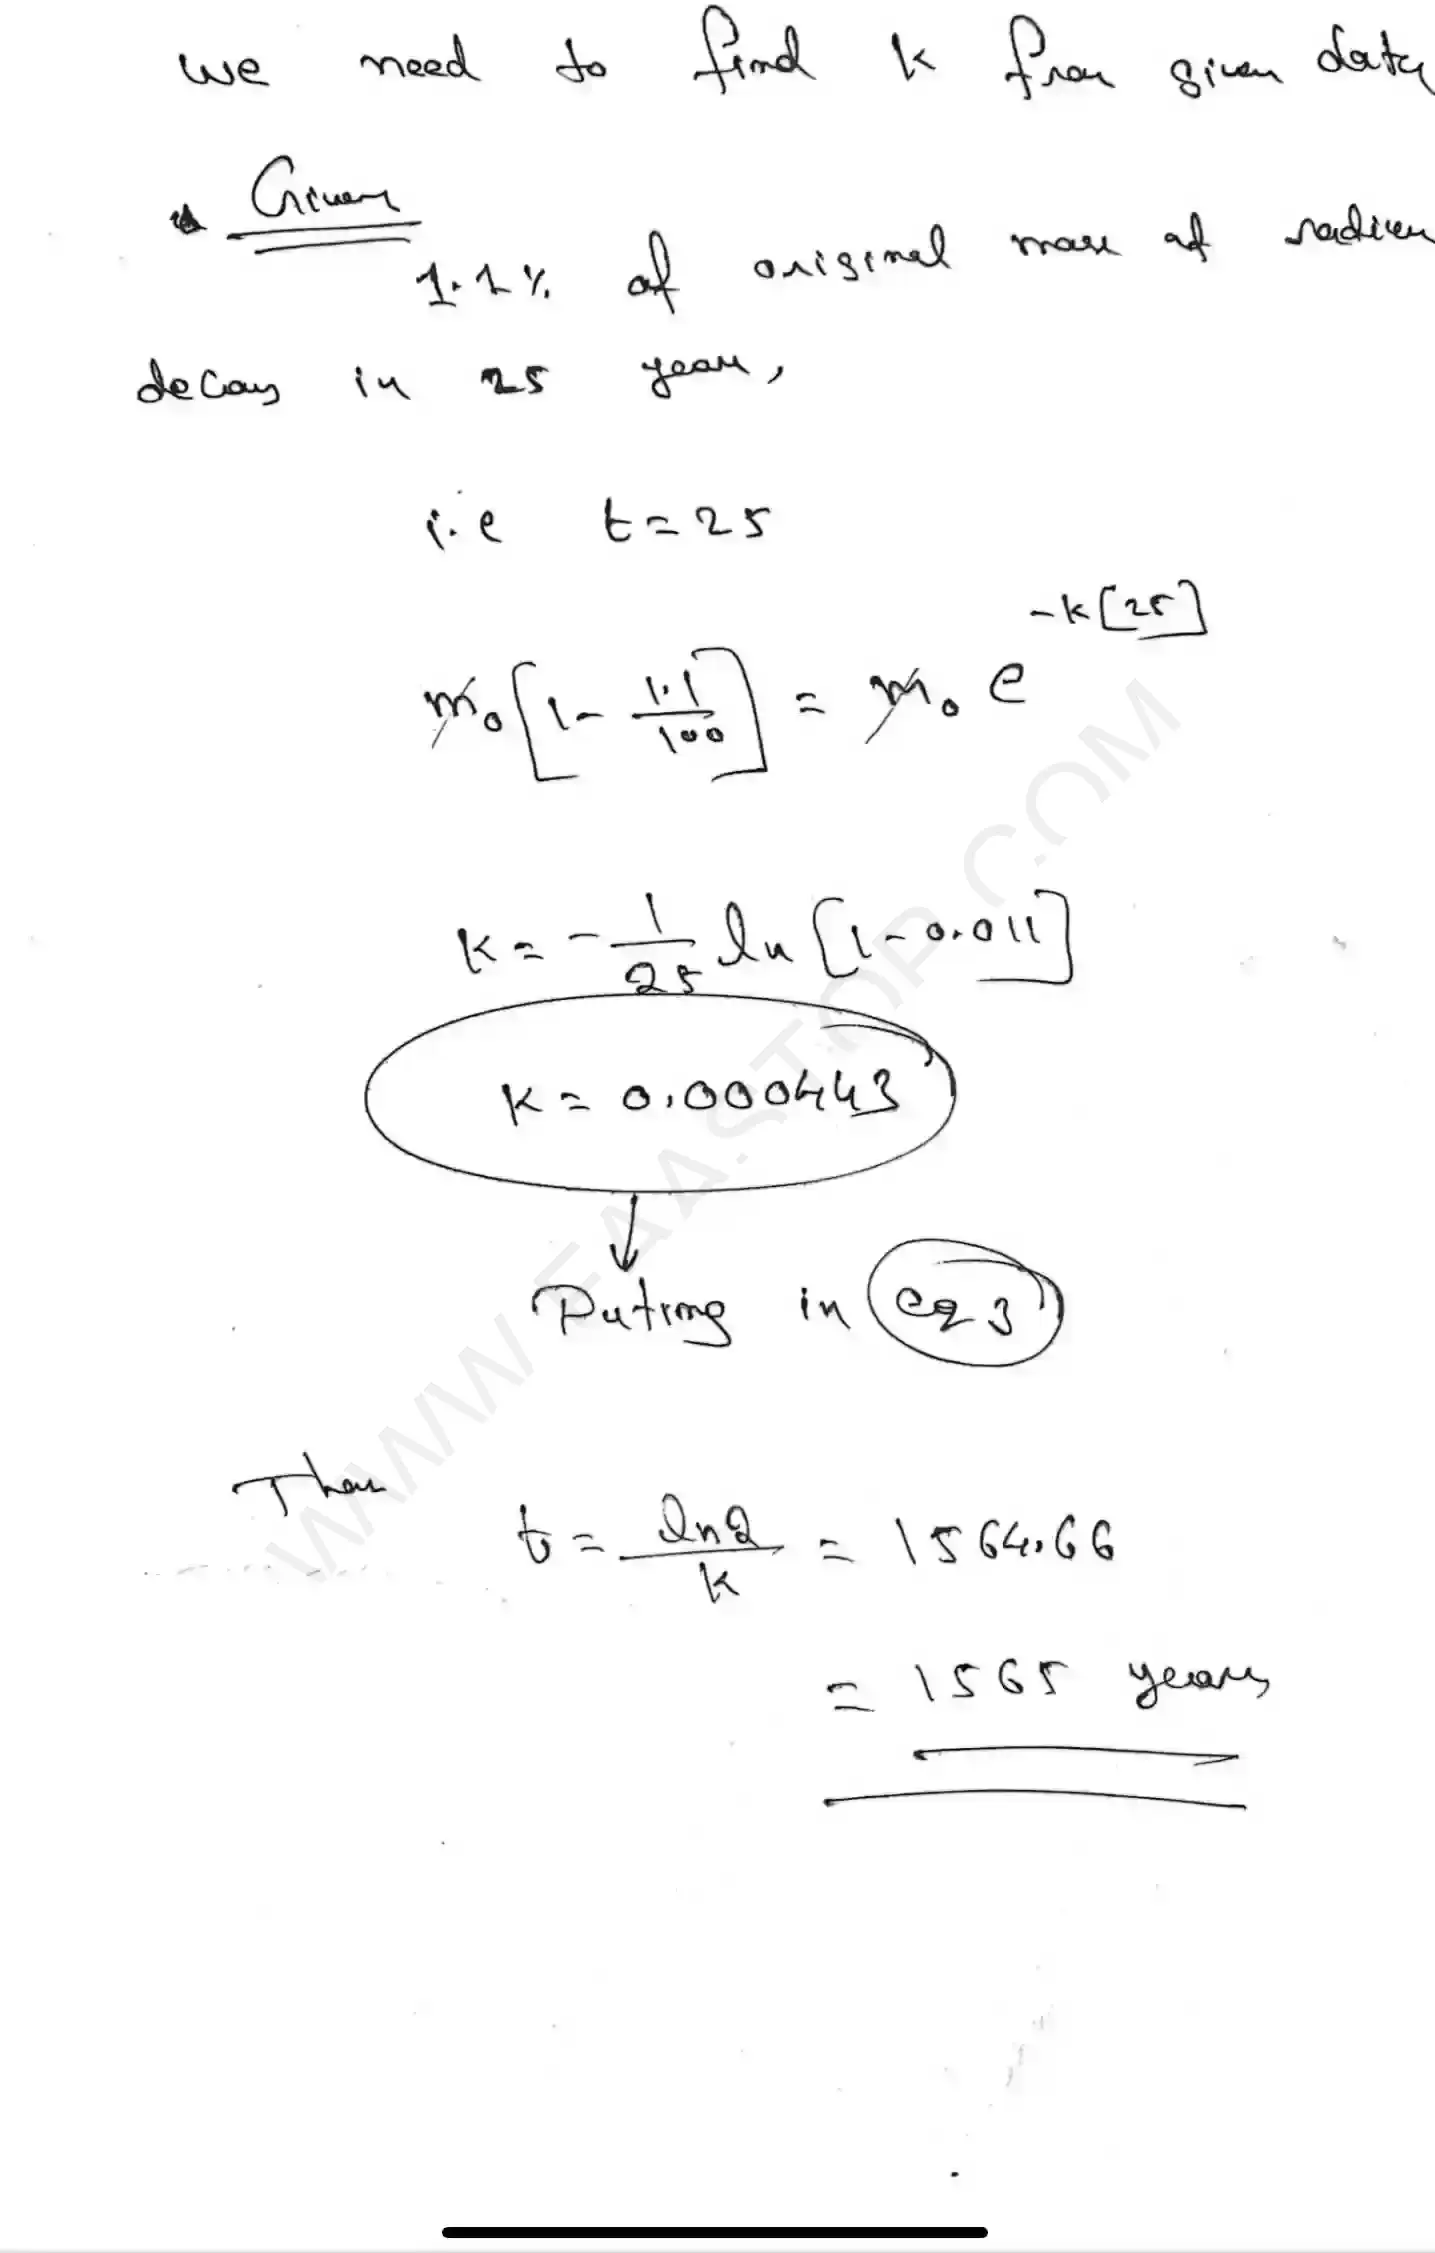 we need to find k from given data
Given
1.1% of original mass of radium
decay in 25 years,
i.e t = 25
m₀[1 - 1.1/100] = m₀ e^-k[25]
k = - 1/25 ln [1 - 0.011]
k = 0.000443
Puting in eq 3
Then
t = ln2/k = 1564.66
= 1565 years